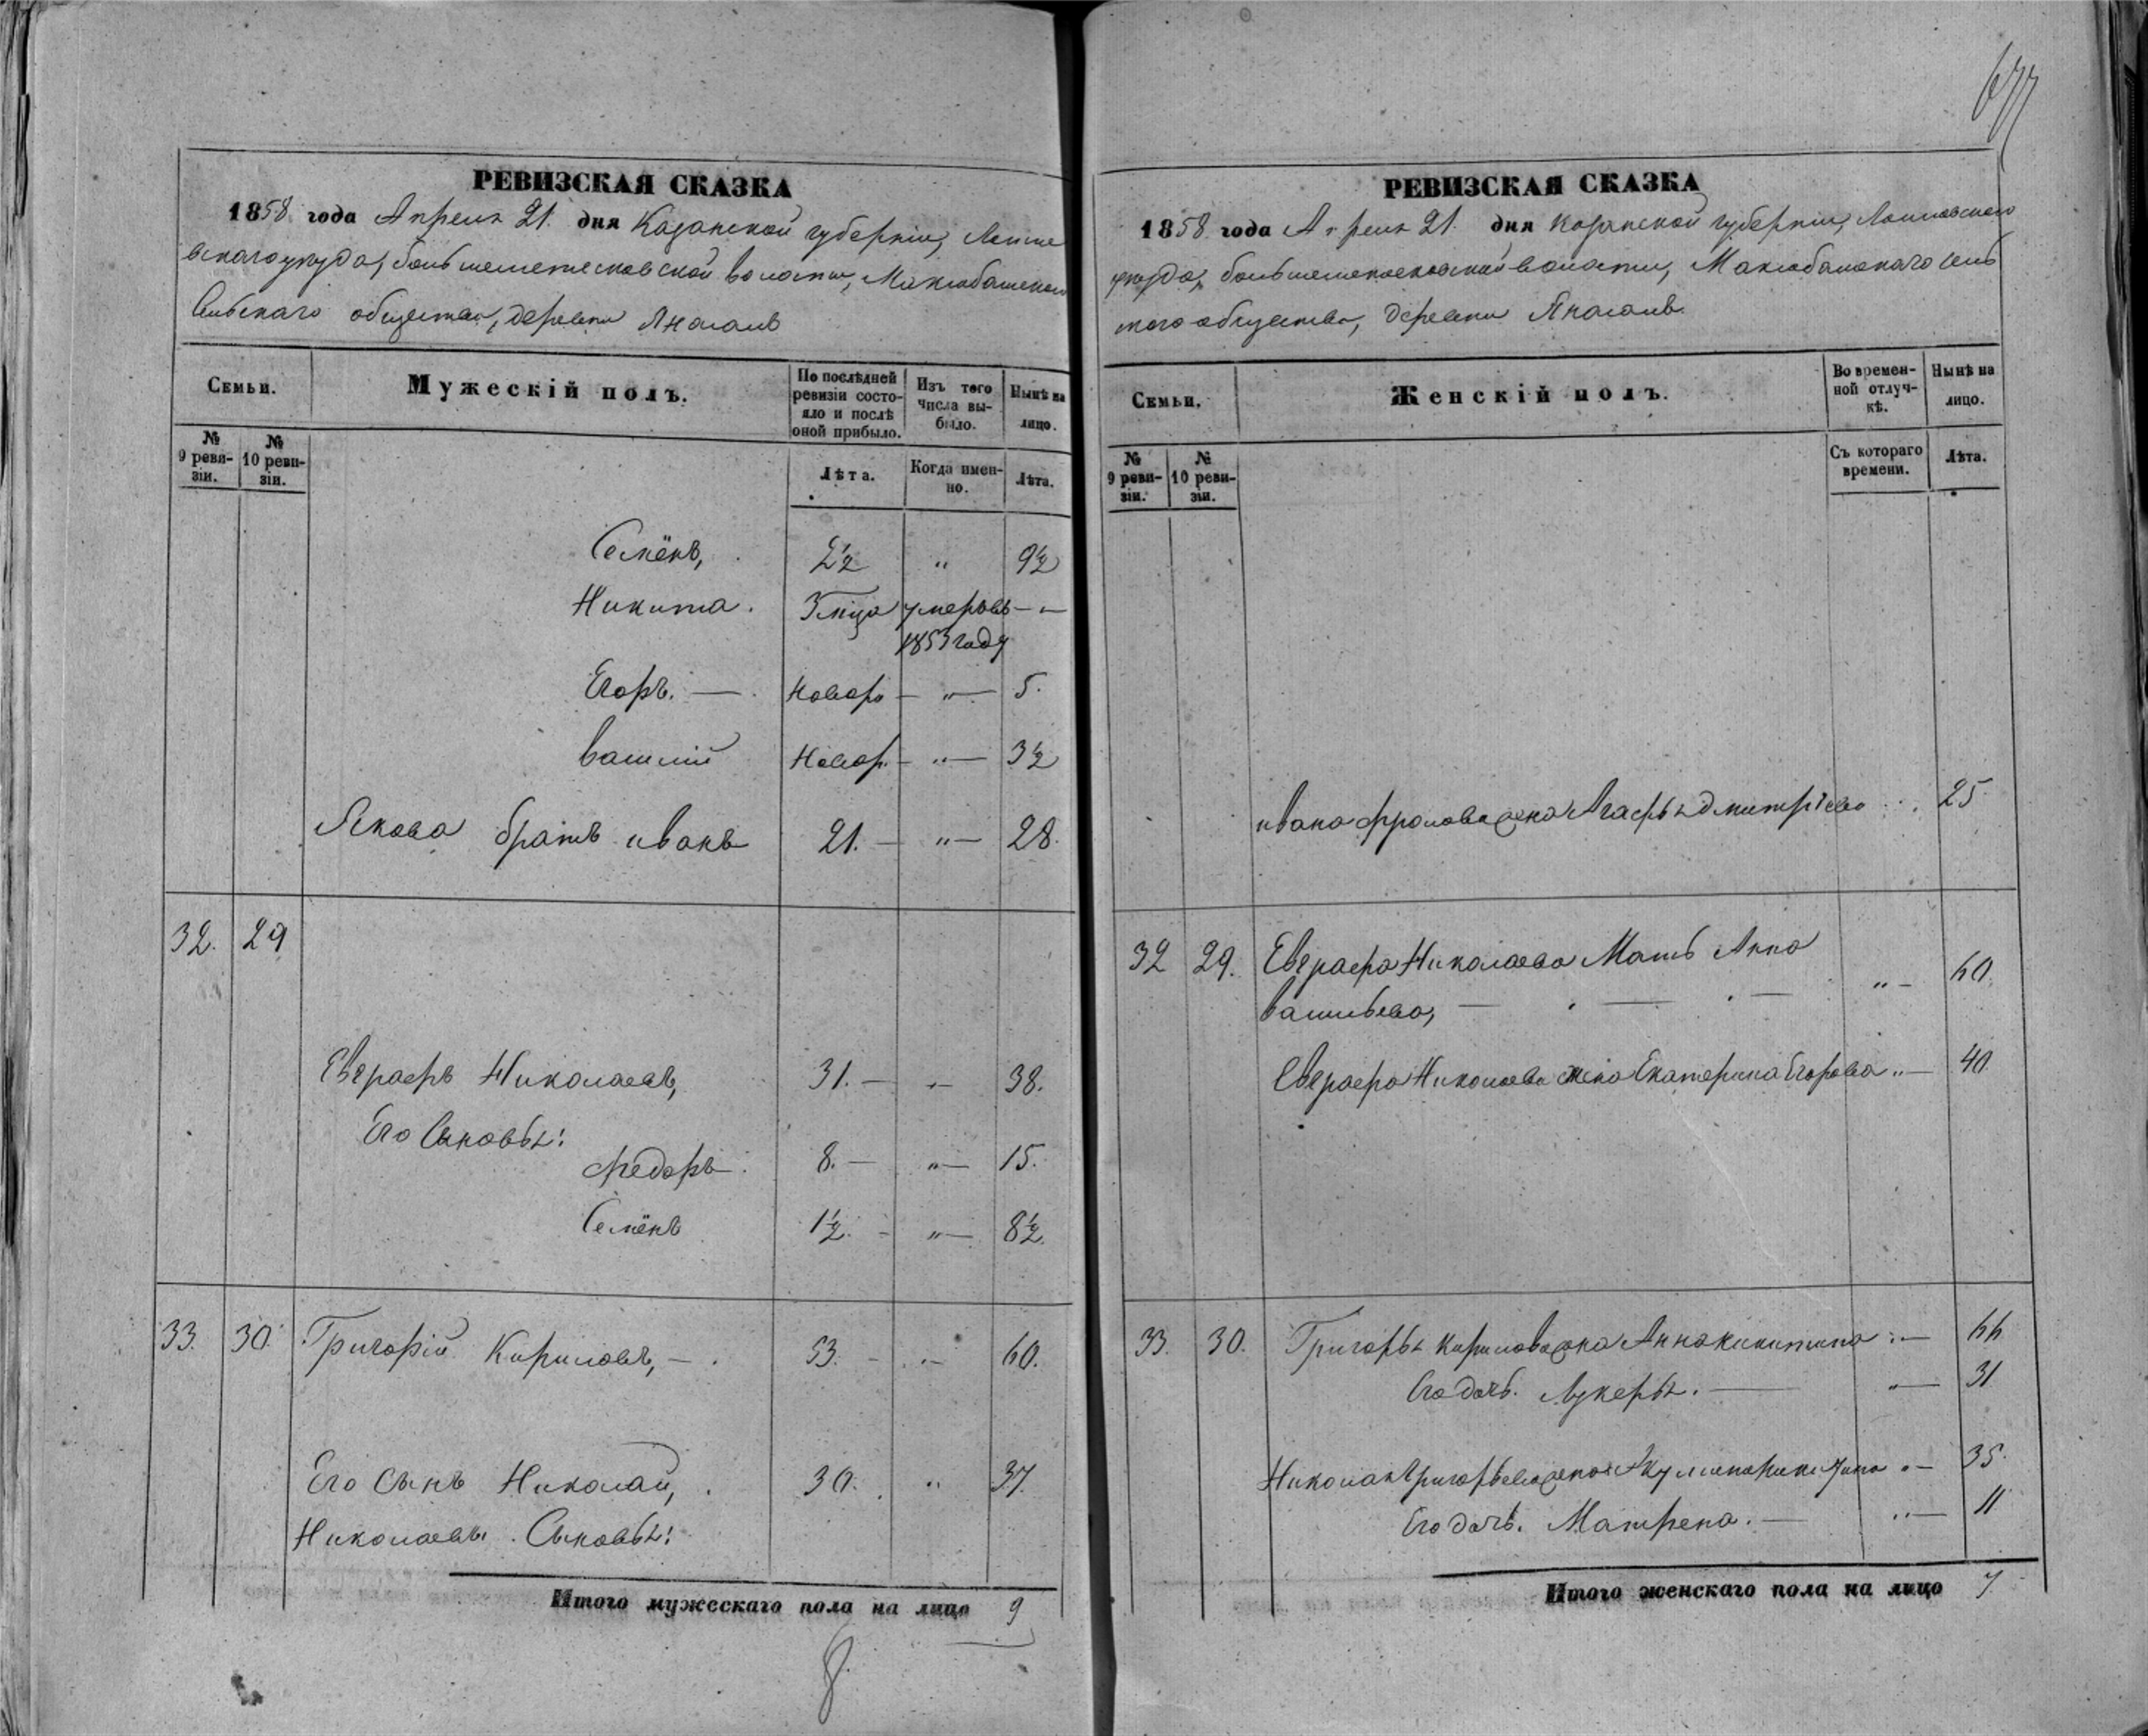 677
РЕВИЗСКАЯ СКАЗКА
1858 года Апреля 21. дня Казанской губернiи, Лаише
вскаго уезда, больше волости,
Сельскаго общества, деревни Янасалъ
Семьи.
Мужескiй полъ.
По послѣдней ревизiи состо-яло и послѣ оной прибыло.
Изъ того числа вы-было.
Нынѣ на лицо.
№ 9 реви-зiи.
№ 10 реви-зiи.
Лѣта.
Когда имен-но.
Лѣта.
Семёнъ, 2½ " 9½
Никита. 3 м҃ца умеръ въ — "
1853 году
Егоръ. — Новор — " — 5.
Василiй Новор. — " — 3½
Якова братъ иванъ 21. — " — 28.
32. 29
Евграфъ Николаевъ, 31. — " — 38.
Его Сыновья:
Федоръ. 8. — " — 15.
Семёнъ 1½. - " — 8½.
33. 30. Григорiй Кириловъ, — . 53. - " - 60.
Его Сынъ Николай, . 30. " 37.
Николаевы Сыновья:
Итого мужескаго пола на лицо 9
РЕВИЗСКАЯ СКАЗКА
1858 года Апреля 21. дня Казанской губернiи, Лаишевскаго
уезда, волости, сель
скаго общества, деревни Янасалъ.
Семьи.
Женскiй полъ.
Во времен-ной отлуч-кѣ.
Нынѣ на лицо.
№ 9 реви-зiи.
№ 10 реви-зiи.
Съ котораго времени.
Лѣта.
ивана фролова жена Агафья дмитрiева 25
32 29. Евграфа Николаева Мать Анна
васильева, — " - 60.
Евграфа Николаева жена Екатерина Егорова " — 40.
33. 30. Григорья Кирилова жена Анна никитина " — 66
Его дочь. Лукерья. — " — 31
Николая Григорьева жена " — 35.
Его дочь. Матрена. — " — 11
Итого женскаго пола на лицо 7